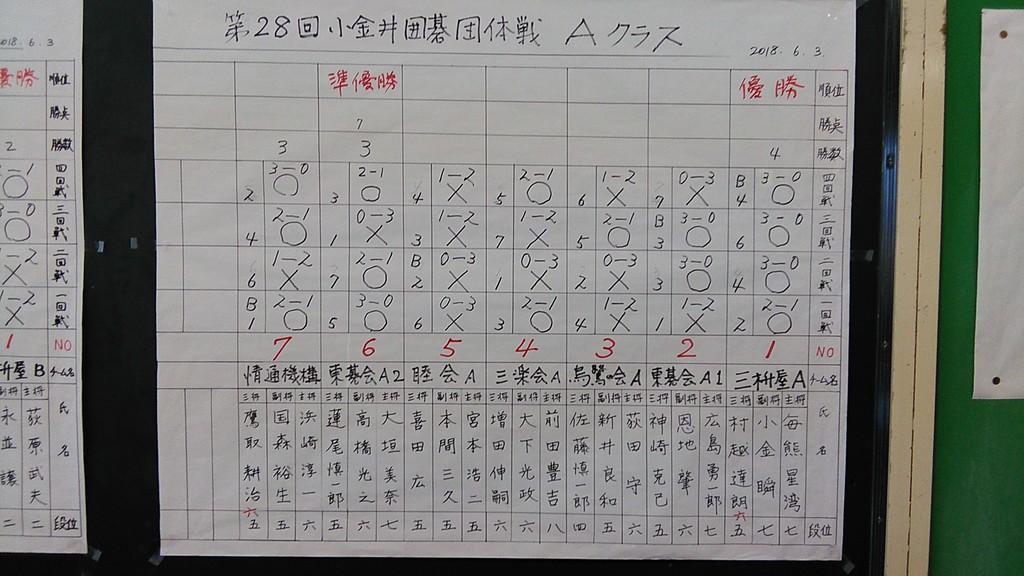 第28回小金井囲碁団体戦 Aクラス
2018. 6. 3.
準優勝 優勝 順位
7 勝点
3 3 4 勝数
2 3-0 ○ 3 2-1 ○ 4 1-2 × 5 2-1 ○ 6 1-2 × 7 0-3 × B4 3-0 ○ 四回戦
4 2-1 ○ 1 0-3 × 3 1-2 × 7 1-2 × 5 2-1 ○ B3 3-0 ○ 6 3-0 ○ 三回戦
6 1-2 × 7 2-1 ○ B2 0-3 × 1 0-3 × 2 0-3 × 3 3-0 ○ 4 3-0 ○ 二回戦
B1 2-1 ○ 5 3-0 ○ 6 0-3 × 3 2-1 ○ 4 1-2 × 1 1-2 × 2 2-1 ○ 一回戦
7 6 5 4 3 2 1 NO
情通機構 東碁会A2 睦会A 三楽会A 烏鷺会A 東碁会A1 三枡屋A チーム名
三将 副将 主将 三将 副将 主将 三将 副将 主将 三将 副将 主将 三将 副将 主将 三将 副将 主将 三将 副将 主将 氏名
鷹取耕治 国森裕生 浜崎淳一 蓮尾慎一郎 高橋光之 大垣美奈 喜田広 本間三久 宮本浩二 増田伸嗣 大下光政 前田豊吉 佐藤慎一郎 新井良和 荻田守 神崎克己 恩地肇 広島勇郎 村越達朗 小金瞬 毎熊星湾
六
五 五 六 五 六 七 五 五 五 六 六 八 四 五 五 五 六 七 五 七 七 段位
六
2018. 6. 3
優勝 順位
勝点
2 勝数
-1 ○ 四回戦
3-0 ○ 三回戦
1-2 × 二回戦
1-2 × 一回戦
1 NO
枡屋B チーム名
副将 主将 氏名
永並護 荻原武夫
二 二 段位